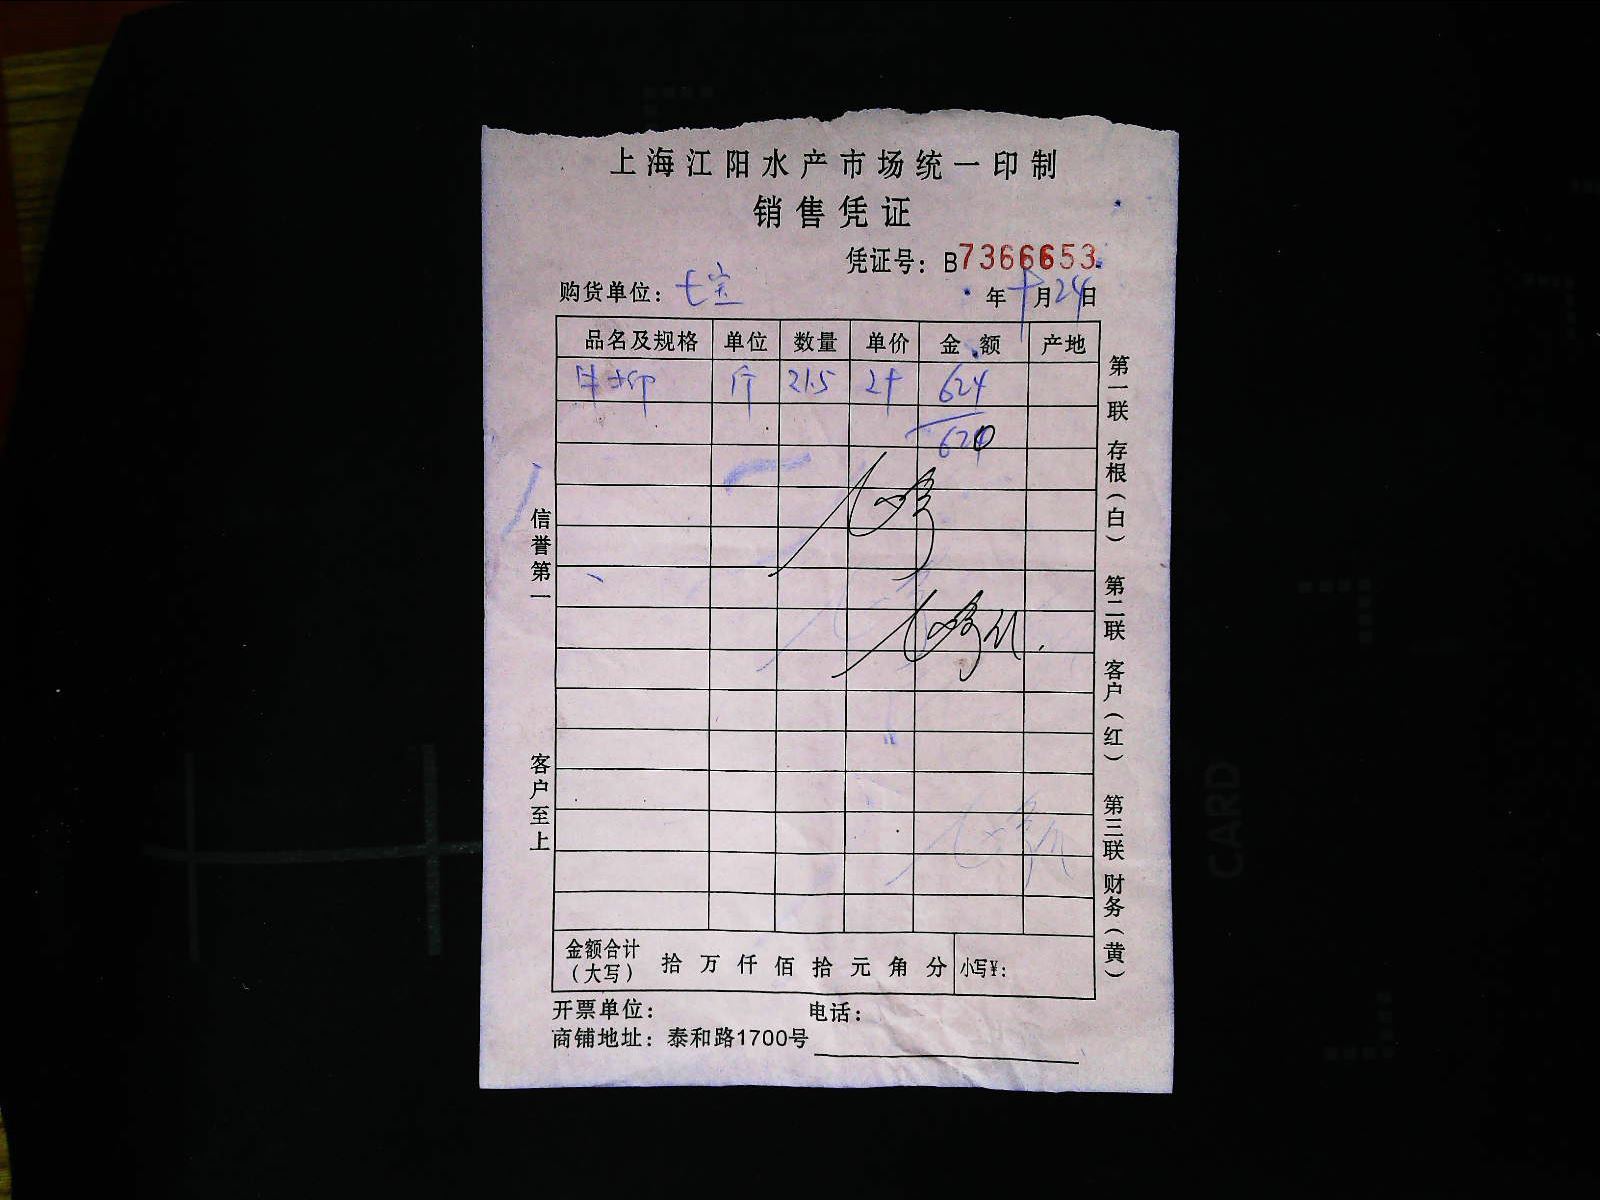 上海江阳水产市场统一印制
销售凭证
凭证号：B7366653
购货单位：七宝
年 十月24日
品名及规格 单位 数量 单价 金额 产地
斤 21.5 624
620
信誉第一
客户至上
第一联 存根（白） 第二联 客户（红） 第三联 财务（黄）
金额合计（大写） 拾 万 仟 佰 拾 元 角 分 小写¥：
开票单位： 电话：
商铺地址：泰和路1700号
CARD